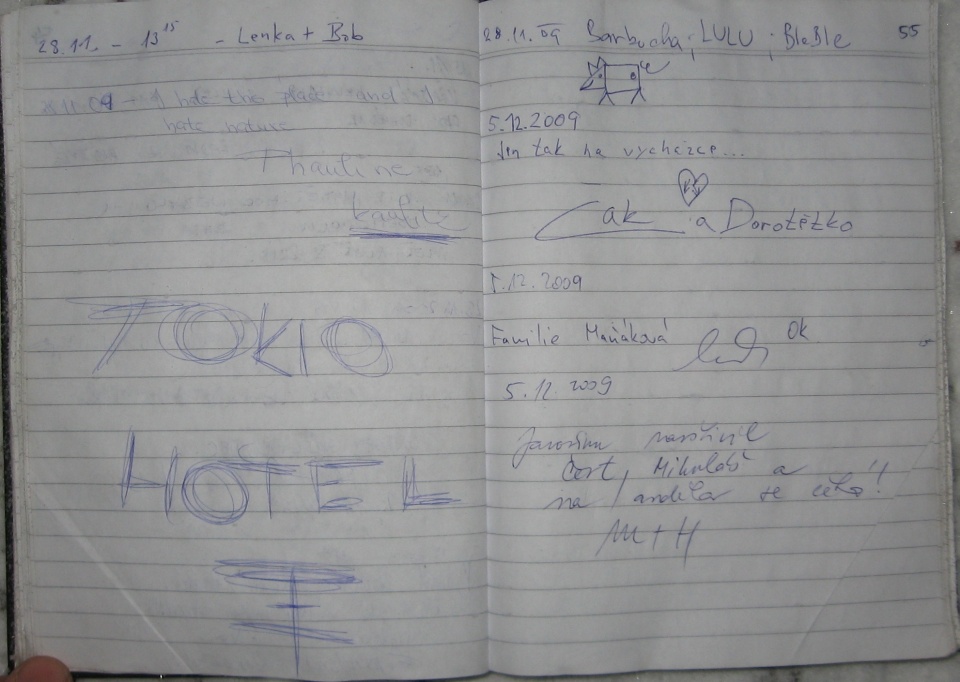 28.11. - 13¹⁵ - Lenka + Bob
11.09 - I hate this place and I
hate nature
TOKIO
HOTEL
28.11.09 Barbucha; LULU; BleBle 55
5.12.2009
Jen tak na vycházce...
Žak a Dorotěžko
5.12.2009
Familie Maňáková Ok
5.12.2009
Jarošov navštívil
čert, Mikuláš a
na anděla se čeká!
M+H